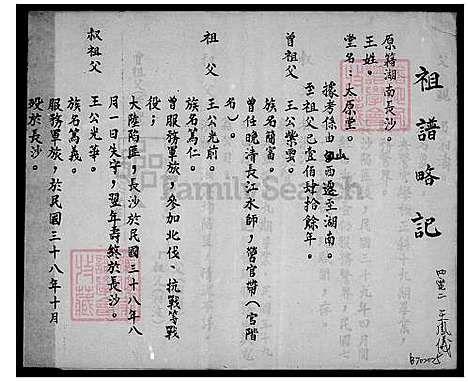 祖譜略記
原籍湖南長沙。
王姓。
堂名:太原堂。
據考係由山西遷至湖南。
至祖父已壹佰肆拾餘年。
曾祖父
王公紫雲。
族名簡富。
曾任晚清長江水師,管官帶(官階
名)。
祖父
王公光前。
族名篤仁。
曾服務軍旅,參加北伐、抗戰等戰
役;
大陸陷匪,長沙於民國三十八年八
月一日失守,翌年壽終於長沙。
叔祖父
王公光華。
族名篤義。
服務軍旅,於民國三十八年十月
歿於長沙。
王鳳儀
FamilySearch